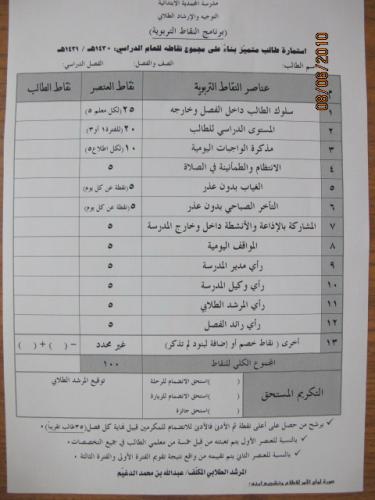 مدرسة المحمدية الابتدائية
التوجيه والإرشاد الطلابي
(برنامج النقاط التربوية)
استمارة طالب متميز بناءً على مجموع نقاطه للعام الدراسي: ١٤٣٠هـ / ١٤٣١هـ
سم الطالب: الصف والفصل: الفصل الدراسي:
م عناصر النقاط التربوية نقاط العنصر نقاط الطالب
١ سلوك الطالب داخل الفصل وخارجه ٢٥ (لكل معلم ٥)
٢ المستوى الدراسي للطالب ٢٠ (للفترة ١ و٣)
٣ مذكرة الواجبات اليومية ١٠ (لكل اطلاع ٥)
٤ الانتظام والطمأنينة في الصلاة ٥
٥ الغياب بدون عذر ٥ (نقطة عن كل يوم)
٦ التأخر الصباحي بدون عذر ٥ (نقطة عن كل يوم)
٧ المشاركة بالإذاعة والأنشطة داخل وخارج المدرسة ٥
٨ المواقف اليومية ٥
٩ رأي مدير المدرسة ٥
١٠ رأي وكيل المدرسة ٥
١١ رأي المرشد الطلابي ٥
١٢ رأي رائد الفصل ٥
١٣ أخرى ( نقاط خصم أو إضافة لبنود لم تذكر) غير محدد ( + ) ( −
المجموع الكلي للنقاط ١٠٠
التكريم المستحق
( ) استحق الانضمام للرحلة
( ) استحق الانضمام للزيارة
( ) استحق جائزة
توقيع المرشد الطلابي
✓ يرشح من حصل على أعلى نقطة ثم الأدنى فالأدنى للانضمام للمكرمين قبيل نهاية كل فصل (٣٥ طالب تقريباً)
✓ بالنسبة للعنصر الأول يتم تعبئته من قبل خمسة من معلمي الطالب في جميع التخصصات
✓ بالنسبة للعنصر الثاني يتم تقييمه من واقع نتيجة تقويم الفترة الأولى والفترة الثالثة
المرشد الطلابي المكلف/ عبدالله بن محمد الدغيم
08/06/2010